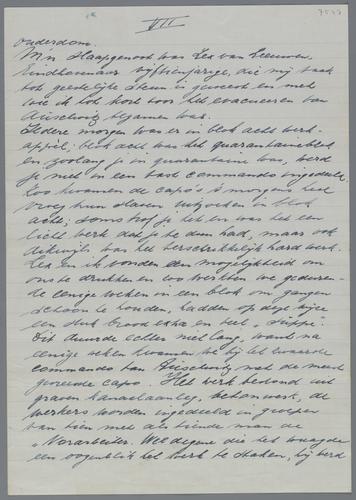 VII
7549
ouderdom.
M'n slaapgenoot was Lex van Leeuwen,
Eindhovenaar vijftienjarige, die mij vaak
tot geestelijke steun is geweest en met
wie ik tot kort voor het evacueeren van
Auschwitz tezamen was.
Iedere morgen was er in blok acht werk-
appèl; blok acht was het quarantaineblok
en zoolang je in quarantaine was, werd
je niet in een vast commando ingedeeld.
Zoo kwamen de capo's 's morgens heel
vroeg hun slaven uitzoeken in blok
acht, soms trof je het en was het een
licht werk dat je te doen had, maar ook
dikwijls was het verschrikkelijk hard werk.
Lex en ik vonden een mogelijkheid om
ons te drukken en zoo werkten we geduren-
de eenige weken in een blok om gangen
schoon te houden, hadden op deze wijze
een stuk brood extra en veel "suppe".
Dit duurde echter niet lang, want na
eenige weken kwamen we bij het zwaarste
commando van Auschwitz met de meest
gevreesde capo. Het werk bestond uit
graven kanaalaanleg, betonwerk, de
werkers worden ingedeeld in groepen
van tien met als tiende man de
"Vorarbeiter. Wee degene die het waagde
een oogenblik het werk te staken, hij werd